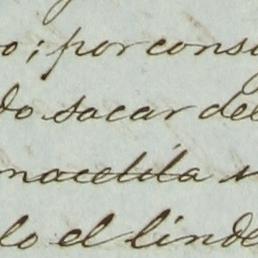 o; por cons
do sacar del
macetita s
lo el linde